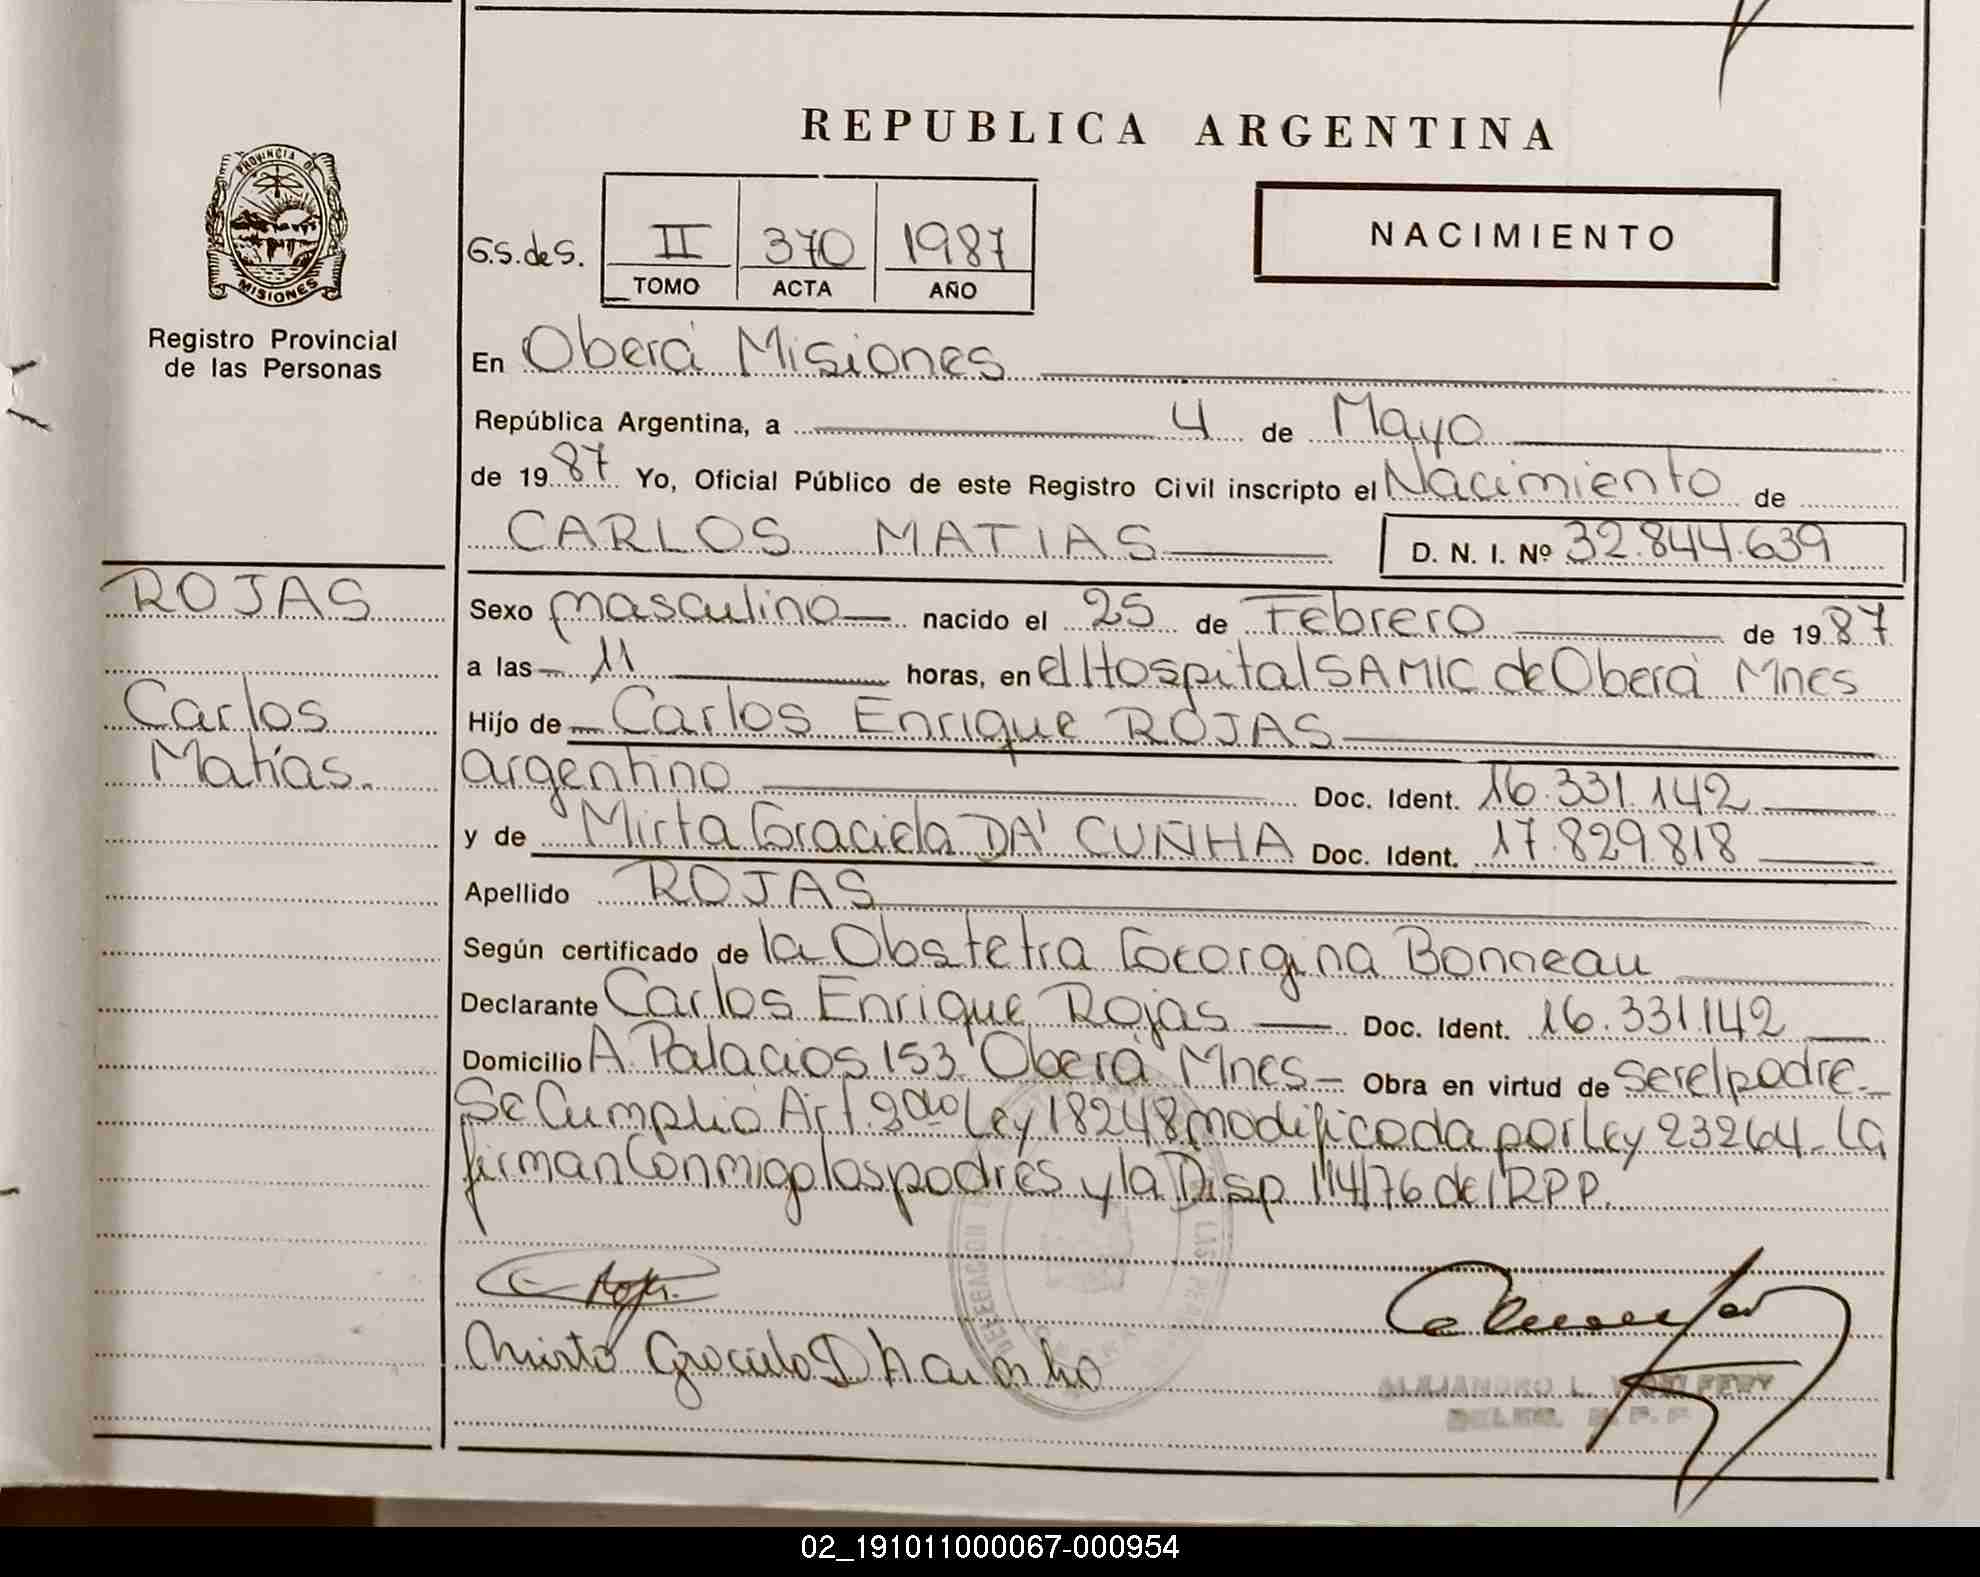 REPUBLICA ARGENTINA
PROVINCIA DE
MISIONES
Registro Provincial
de las Personas
NACIMIENTO
G.S. de S. II 370 1987
TOMO ACTA AÑO
En Oberá Misiones
República Argentina, a 4 de Mayo
de 1987 Yo, Oficial Público de este Registro Civil inscripto el Nacimiento de
CARLOS MATIAS D. N. I. Nº 32.844.639
ROJAS
Carlos
Matías.
Sexo masculino nacido el 25 de Febrero de 1987
a las 11 horas, en el Hospital SAMIC de Oberá Mnes
Hijo de Carlos Enrique ROJAS
argentino Doc. Ident. 16.331.142
y de Mirta Graciela DA' CUNHA Doc. Ident. 17.829.818
Apellido ROJAS
Según certificado de la Obstetra Georgina Bonneau
Declarante Carlos Enrique Rojas Doc. Ident. 16.331.142
Domicilio A. Palacios 153 Oberá Mnes - Obra en virtud de ser el padre -
Se Cumplió Art. 2do Ley 18248 modificada por Ley 23264 - La
firman Conmigo los padres y la Disp 114/76 del RPP.
DELEGACION LAS
ALEJANDRO L.
02_191011000067-000954